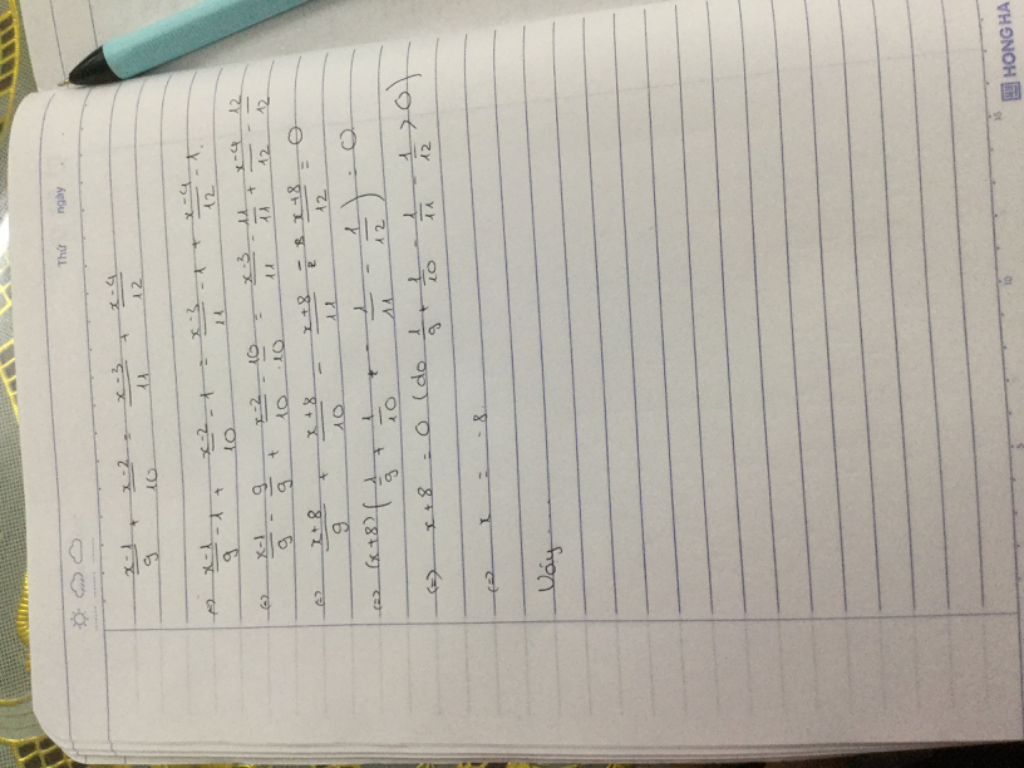 Thứ ngày
x-1/9 + x-2/10 = x-3/11 + x-4/12
(=) x-1/9 - 1 + x-2/10 - 1 = x-3/11 - 1 + x-4/12 - 1.
(=) x-1/9 - 9/9 + x-2/10 - 10/10 = x-3/11 - 11/11 + x-4/12 - 12/12
(=) x+8/9 + x+8/10 - x+8/11 - x+8/12 = 0
(=) (x+8) (1/9 + 1/10 - 1/11 - 1/12) = 0
(=) x+8 = 0 (do 1/9 + 1/10 - 1/11 - 1/12 > 0)
(=) x = -8
Vậy ....
HONG HA
5
10
15